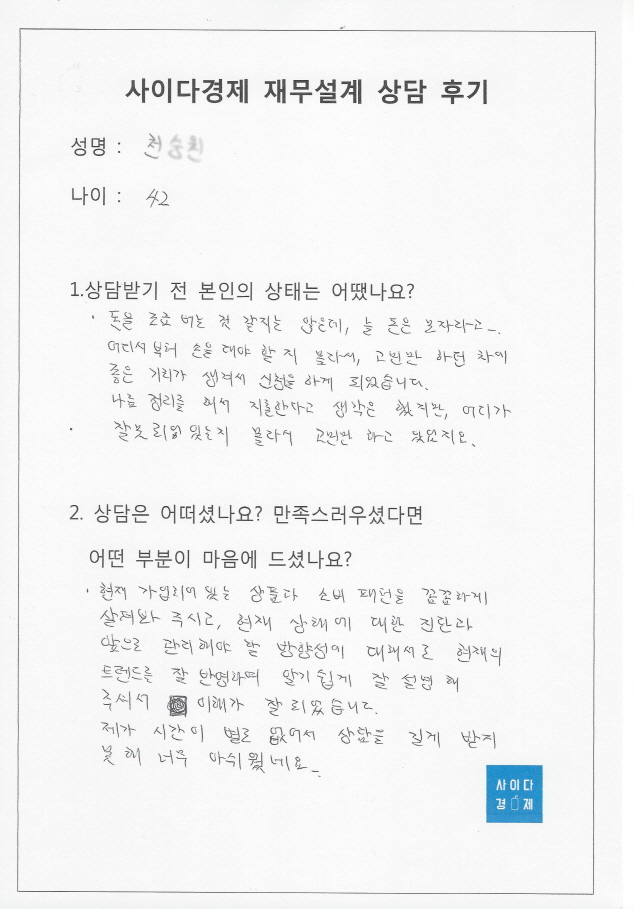 사이다경제 재무설계 상담 후기
성명 : 천
나이 : 42
1.상담받기 전 본인의 상태는 어땠나요?
· 돈을 조금 버는 것 같지는 않은데, 늘 돈은 모자라고-.
어디서부터 손을 대야 할 지 몰라서, 고민만 하던 차에
좋은 기회가 생겨서 신청을 하게 되었습니다.
나름 정리를 해서 지출한다고 생각은 했지만, 어디가
· 잘못 되어 있는지 몰라서 고민만 하고 있었지요.
2. 상담은 어떠셨나요? 만족스러우셨다면
어떤 부분이 마음에 드셨나요?
· 현재 가입되어 있는 상품과 소비 패턴을 꼼꼼하게
살펴봐 주시고, 현재 상태에 대한 진단과
앞으로 관리해야 할 방향성에 대해서도 현재의
트렌드를 잘 반영하며 알기 쉽게 잘 설명 해
주셔서 이해가 잘 되었습니다.
제가 시간이 별로 없어서 상담을 길게 받지
못 해 너무 아쉬웠네요-.
사이다
경제